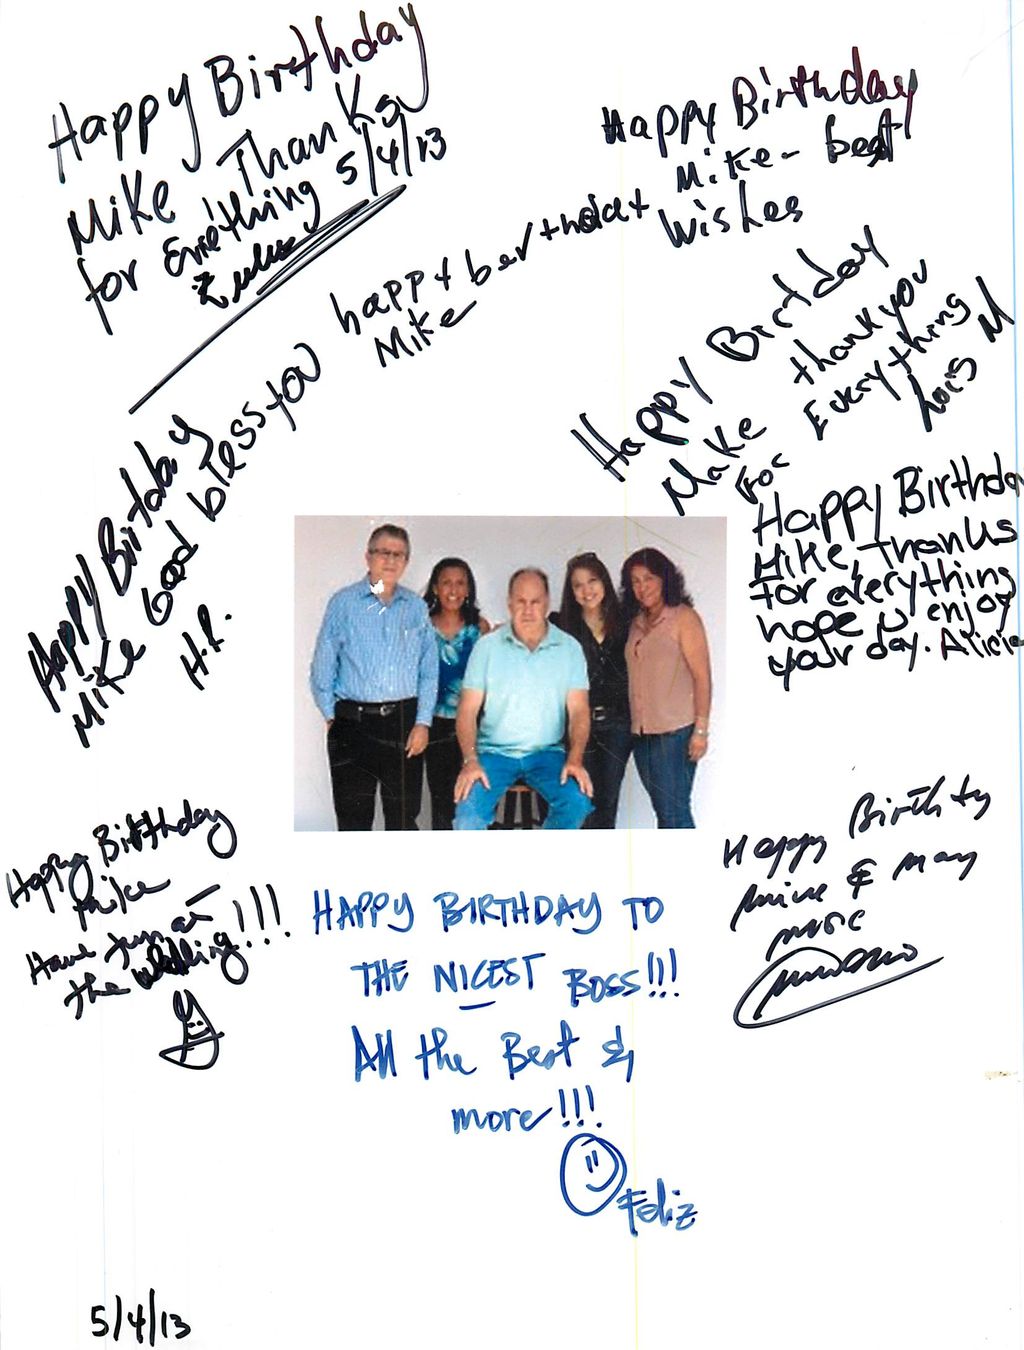 Happy Birthday
Mike Thanks
for Evrithing 5/4/13
Happy Birthday
Mike - best
Wishes
happy berthdat
Mike
Happy Birtday
Make thank you
For Everything
Lois M
Happy Birtday
Mike Good bless you
H.R.
Happy Birthda
Mike, thanks
for everything
hope u enjoy
your day. Alicia
Happy Birthday
Mike
Have fun at
the wedding!!!
HAPPY BIRTHDAY TO
THE NICEST BOSS!!!
All the Best &
more!!!
Feliz
Happy Birthty
Mike & many
more
5/4/13